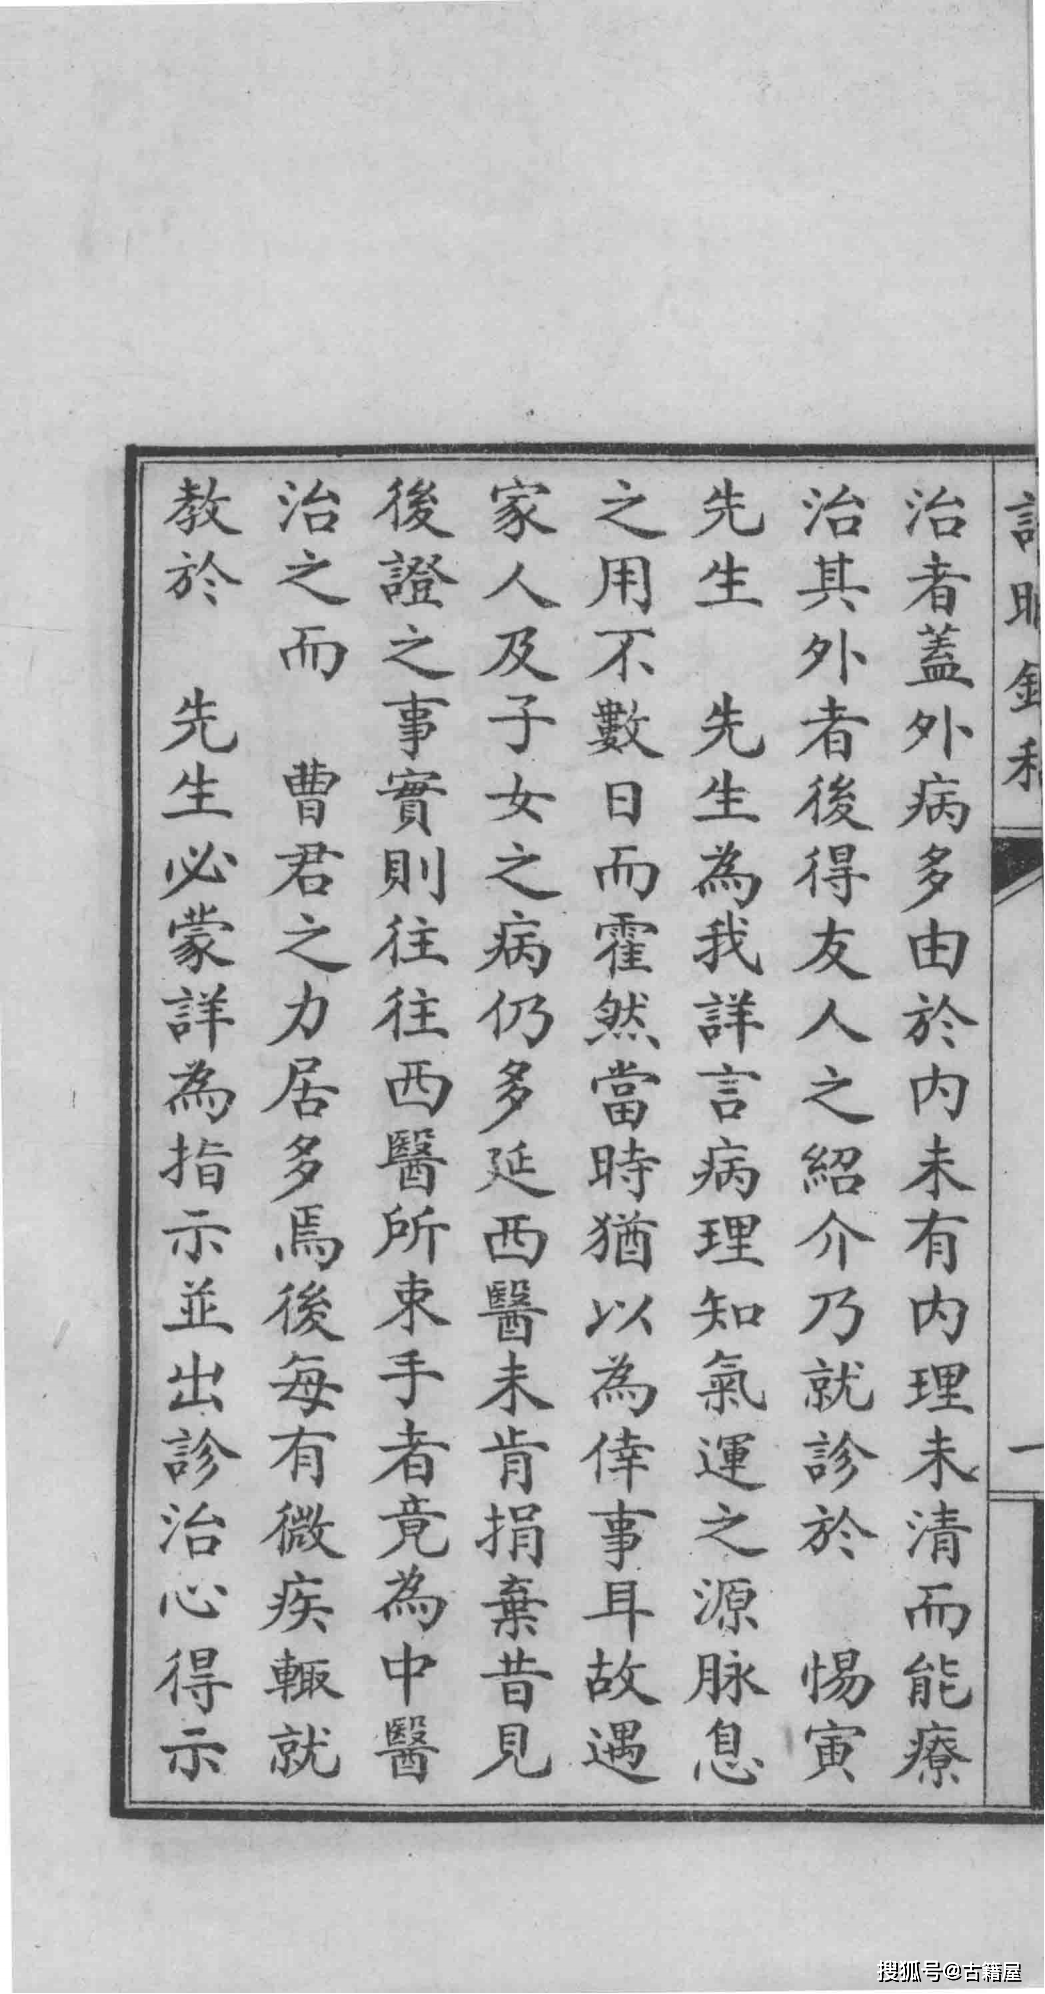 治者蓋外病多由於内未有内理未清而能療
治其外者後得友人之紹介乃就診於　惕寅
先生　先生為我詳言病理知氣運之源脉息
之用不數日而霍然當時猶以為倖事耳故遇
家人及子女之病仍多延西醫未肯捐棄昔見
後證之事實則往往西醫所束手者竟為中醫
治之而　曹君之力居多焉後每有微疾輒就
教於　先生必蒙詳為指示並出診治心得示
搜狐号@古籍屋